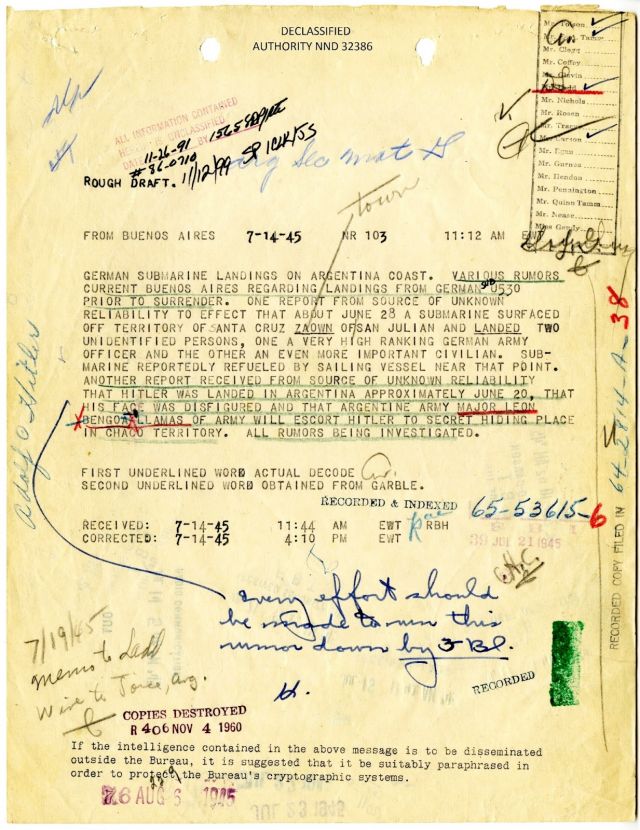 DECLASSIFIED
AUTHORITY NND 32386
Mr. Tolson
Mr. Clegg
Mr. Coffey
Mr. Glavin
Mr. Ladd
Mr. Nichols
Mr. Rosen
Mr. Tracy
Mr. Carson
Mr. Egan
Mr. Gurnea
Mr. Hendon
Mr. Pennington
Mr. Quinn Tamm
Mr. Nease
Miss Gandy
ALL INFORMATION CONTAINED
11-26-91
#86-0710
11/12/99
ROUGH DRAFT.
town
FROM BUENOS AIRES 7-14-45 NR 103 11:12 AM EWT
GERMAN SUBMARINE LANDINGS ON ARGENTINA COAST. VARIOUS RUMORS
CURRENT BUENOS AIRES REGARDING LANDINGS FROM GERMAN SUB U530
PRIOR TO SURRENDER. ONE REPORT FROM SOURCE OF UNKNOWN
RELIABILITY TO EFFECT THAT ABOUT JUNE 28 A SUBMARINE SURFACED
OFF TERRITORY OF SANTA CRUZ ZAOWN OF SAN JULIAN AND LANDED TWO
UNIDENTIFIED PERSONS, ONE A VERY HIGH RANKING GERMAN ARMY
OFFICER AND THE OTHER AN EVEN MORE IMPORTANT CIVILIAN. SUB-
MARINE REPORTEDLY REFUELED BY SAILING VESSEL NEAR THAT POINT.
ANOTHER REPORT RECEIVED FROM SOURCE OF UNKNOWN RELIABILITY
THAT HITLER WAS LANDED IN ARGENTINA APPROXIMATELY JUNE 20, THAT
HIS FACE WAS DISFIGURED AND THAT ARGENTINE ARMY MAJOR LEON
BENGOA LLAMAS OF ARMY WILL ESCORT HITLER TO SECRET HIDING PLACE
IN CHACO TERRITORY. ALL RUMORS BEING INVESTIGATED.
FIRST UNDERLINED WORD ACTUAL DECODE
SECOND UNDERLINED WORD OBTAINED FROM GARBLE.
RECORDED & INDEXED 65-53615-6
RECEIVED: 7-14-45 11:44 AM EWT RBH
CORRECTED: 7-14-45 4:10 PM EWT
39 JUL 21 1945
Adolf Hitler
64-2814-A-38
RECORDED COPY FILED IN
every effort should
be made to run this
rumor down by FBI.
H.
RECORDED
7/19/45
Memo to Ladd
Wire to Joice, Arg.
COPIES DESTROYED
R 406 NOV 4 1960
If the intelligence contained in the above message is to be disseminated
outside the Bureau, it is suggested that it be suitably paraphrased in
order to protect the Bureau's cryptographic systems.
76 AUG 6 1945
JUL 23 1945